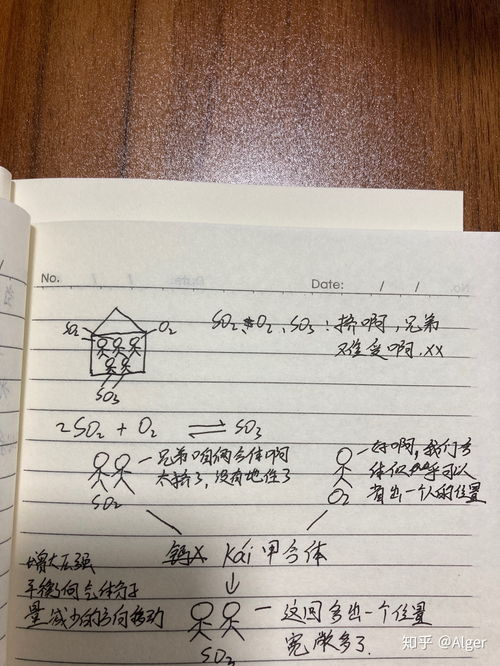 No.
Date: / /
SO₂ O₂
SO₂ O₂、SO₃：挤啊，兄弟
难受啊.xx
SO₃
2SO₂ + O₂ ⇌ SO₃
兄弟咱俩合体啊
太挤了，没有地住了
SO₂
好啊，我们合
体似乎可以
省出一个人的位置
O₂
kǎi甲合体
增大压强
平衡向气体分子
量减少的方向移动
这回多出一个位置
宽敞多了
SO₃
知乎 @Alger